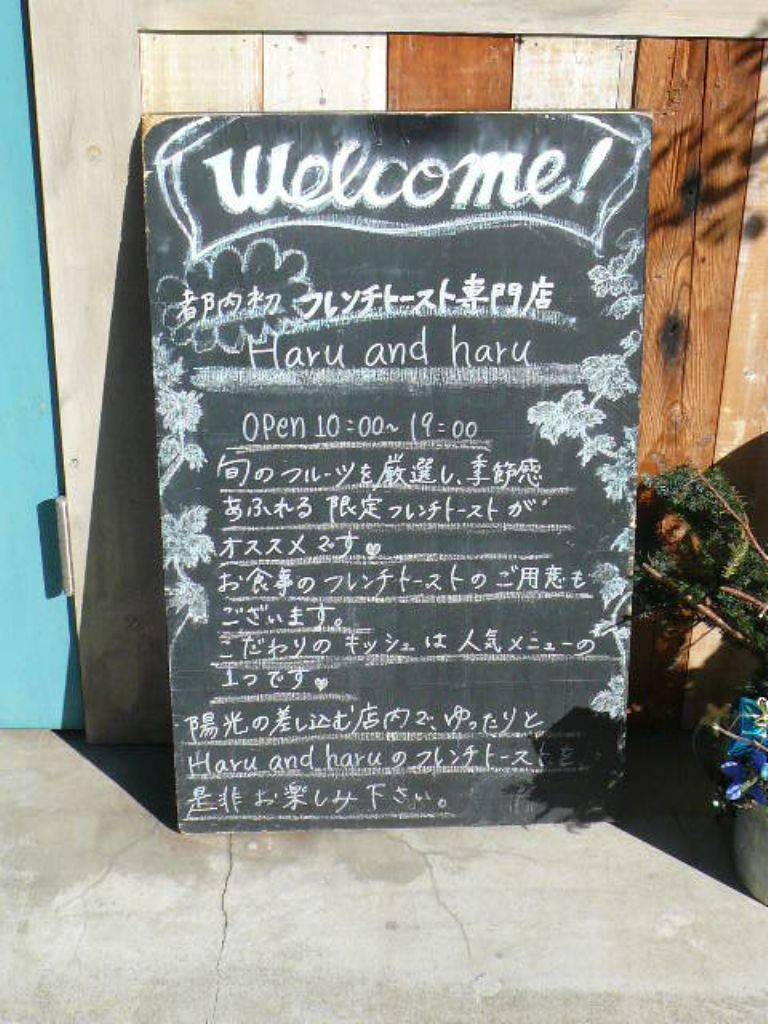 Welcome!
都内初 フレンチトースト専門店
Haru and haru
Open 10:00~19:00
旬のフルーツを厳選し、季節感
あふれる 限定フレンチトーストが
オススメです♥
お食事のフレンチトーストのご用意も
ございます。
こだわりの キッシュは 人気メニューの
1つです♥
陽光の差し込む店内で、ゆったりと
Haru and haruのフレンチトーストを
是非お楽しみ下さい。